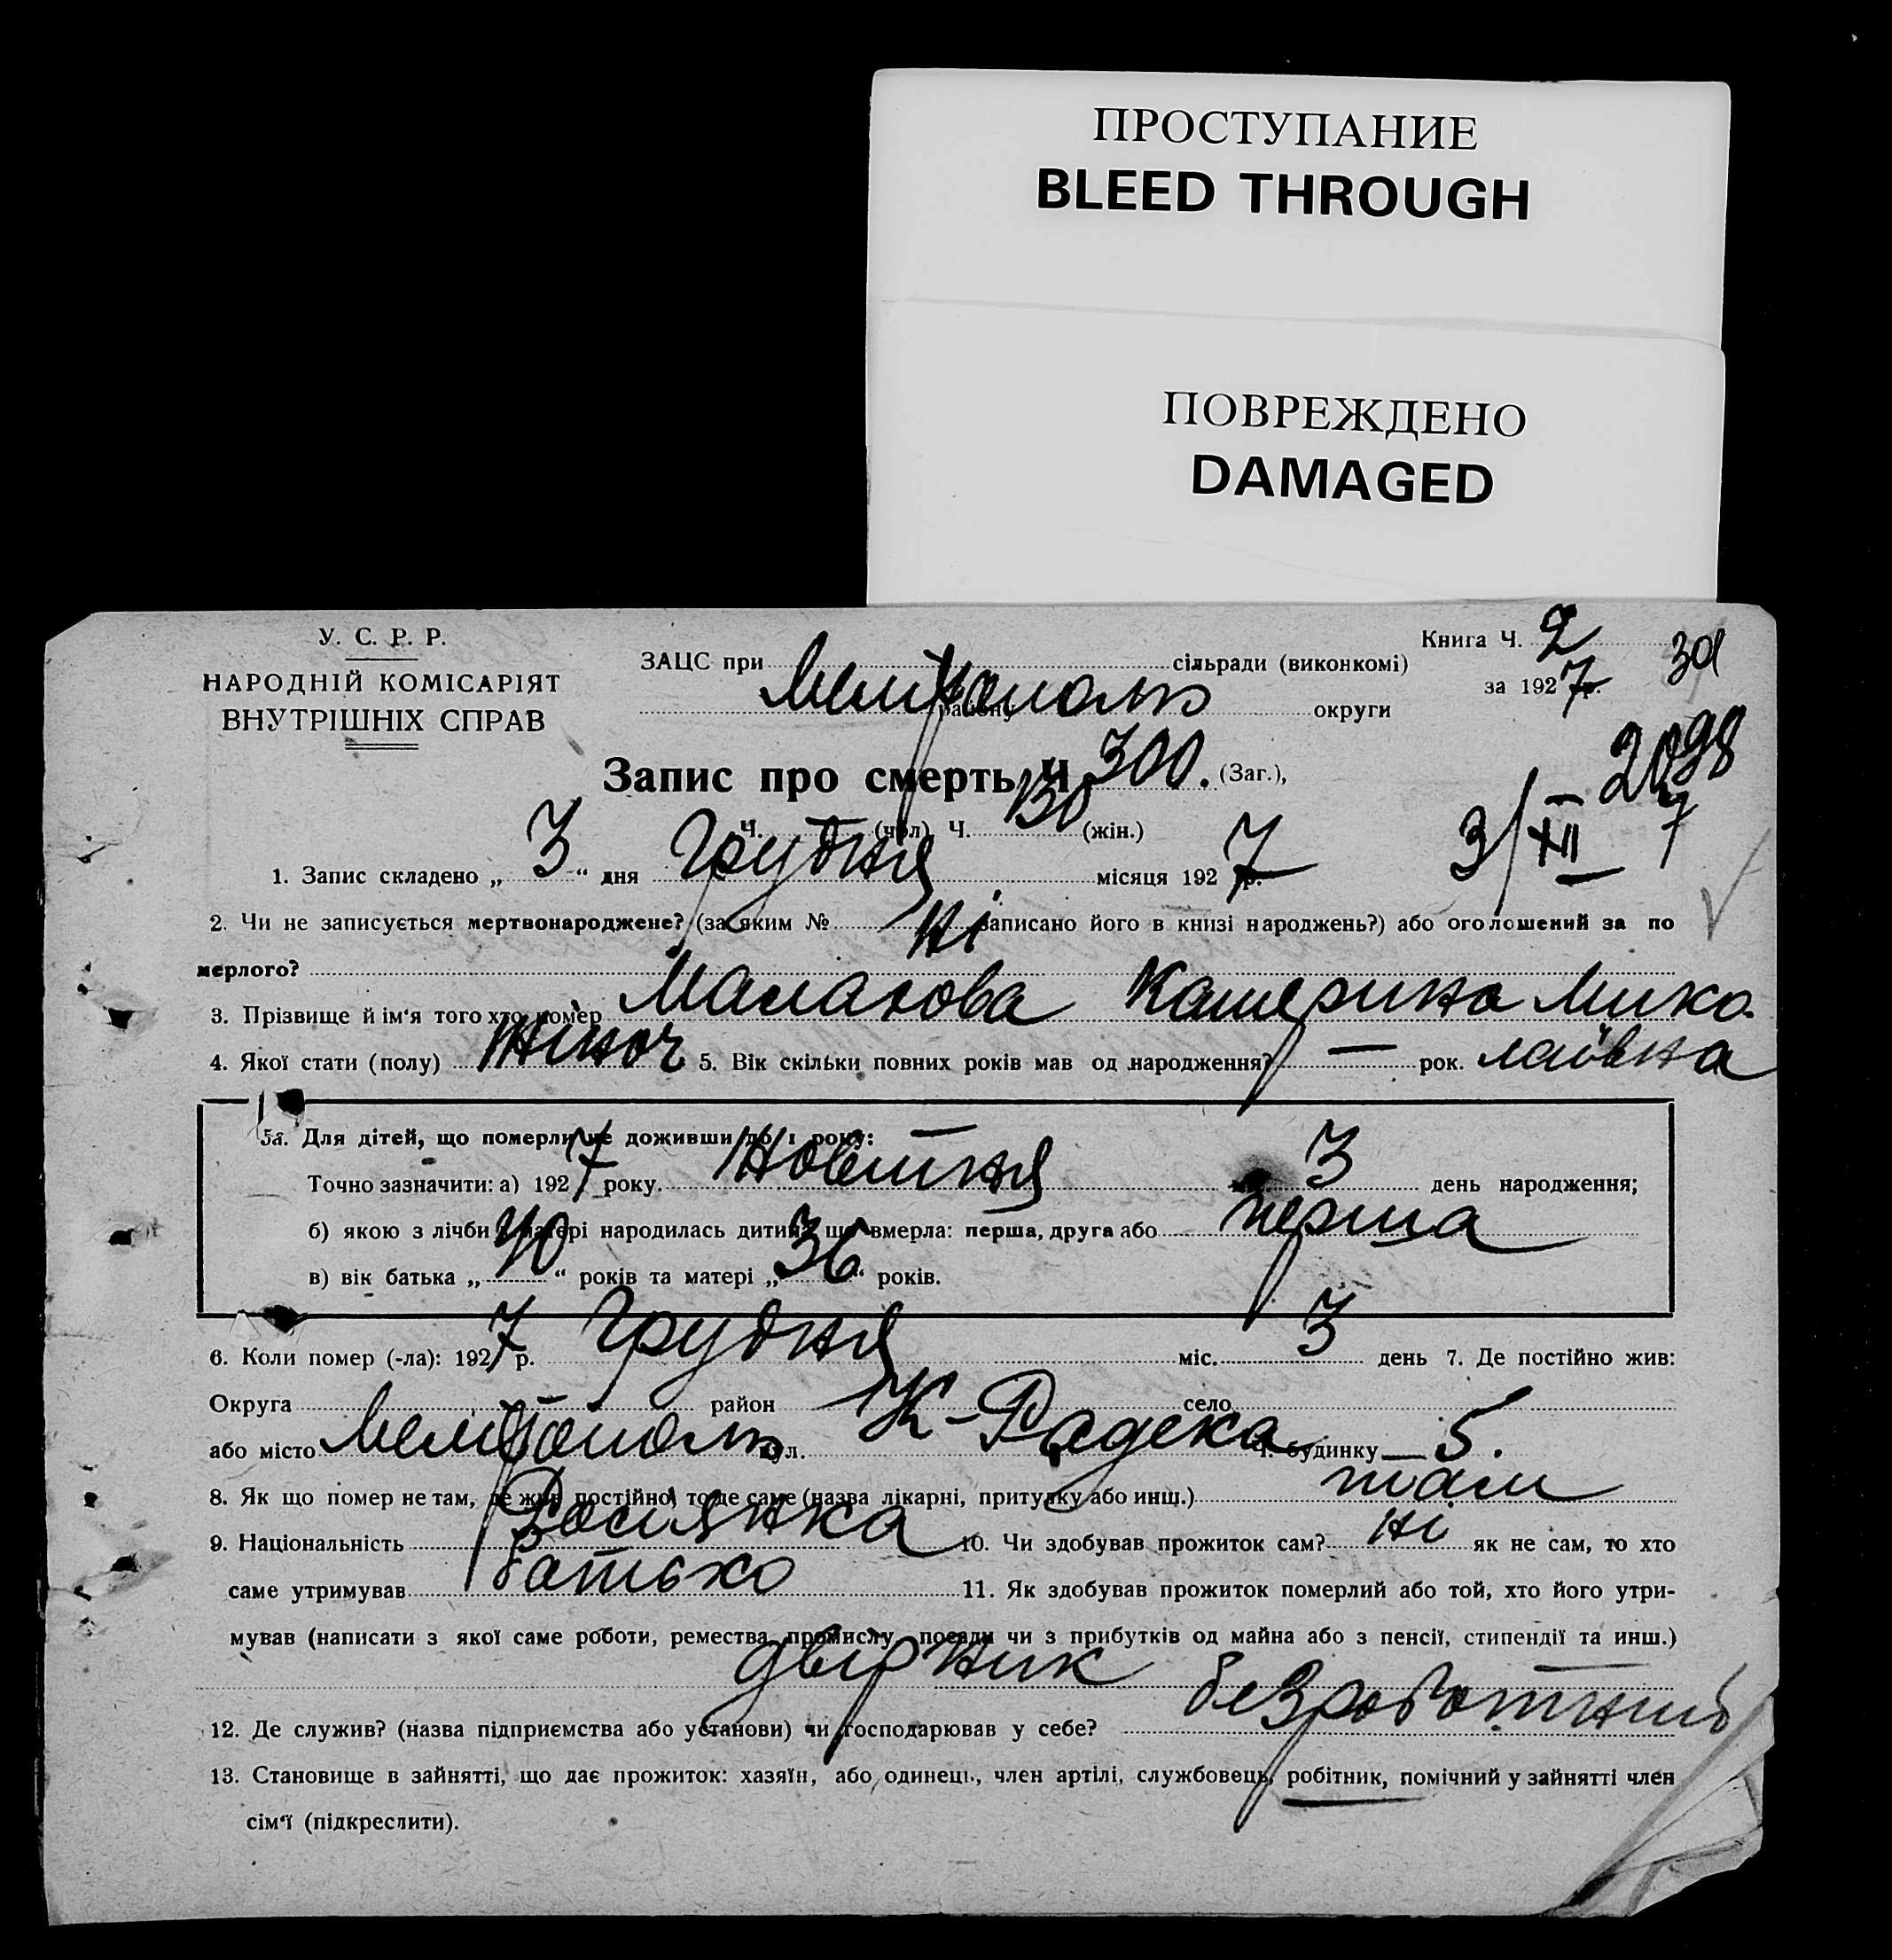 ПРОСТУПАНИЕ
BLEED THROUGH
ПОВРЕЖДЕНО
DAMAGED
У. С. Р. Р.
НАРОДНІЙ КОМІСАРІЯТ
ВНУТРІШНІХ СПРАВ
Книга Ч. 2
за 1927 р.
301
ЗАЦС при сільради (виконкомі)
Мелітополь району округи
2098
Запис про смерть Ч 300. (Заг.),
Ч. (чол) Ч. 130 (жін.)
3/XII 7
1. Запис складено „ 3 “ дня Грудня місяця 1927 р.
2. Чи не записується мертвонароджене? (за яким № Ні записано його в книзі народжень?) або оголошений за по
мерлого?
3. Прізвище й ім'я того хто помер Малахова Катерина Мико-
4. Якої стати (полу) Жіноч 5. Вік скільки повних років мав од народження? — рок. лаївна
5а. Для дітей, що померли не доживши до 1 року:
Точно зазначити: а) 1927 року. Новітня 3 день народження;
б) якою з лічби у матері народилась дитина що вмерла: перша, друга або перша
в) вік батька „ 40 “ років та матері „ 36 “ років.
6. Коли помер (-ла): 1927 р. Грудня міс. 3 день 7. Де постійно жив:
Округа район село
або місто Мелітополь вул. К-Радека Ч. будинку 5.
8. Як що помер не там, де жив постійно, то де саме (назва лікарні, притулку або инш.) там
9. Національність Росіянка 10. Чи здобував прожиток сам? Ні як не сам, то хто
саме утримував батько 11. Як здобував прожиток померлий або той, хто його утри-
мував (написати з якої саме роботи, ремества, промислу, посади чи з прибутків од майна або з пенсії, стипендії та инш.)
двірник
12. Де служив? (назва підприємства або установи) чи господарював у себе? безработний
13. Становище в зайнятті, що дає прожиток: хазяїн, або одинець, член артілі, службовець, робітник, помічний у зайнятті член
сім'ї (підкреслити).